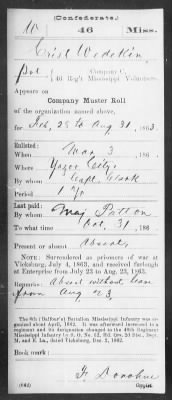 (Confederate.)
W 46 Miss.
Crist Wedekin
Pvt, Company C,
46 Reg't Mississippi Volunteers.
Appears on
Company Muster Roll
of the organization named above,
for Feb, 28 to Aug 31, 1863.
Enlisted:
When Mar 3, 186
Where Yazoo City
By whom Capt. Clark
Period 1 Yr
Last paid:
By whom Maj Patton
To what time Oct. 31, 186
Present or absent Absent
NOTE: Surrendered as prisoners of war at
Vicksburg, July 4, 1863, and received furlough
at Enterprise from July 23 to Aug. 23, 1863.
Remarks: Absent without leave
from Aug 23
The 6th (Balfour's) Battalion Mississippi Infantry was
organized about April, 1862. It was afterwards increased to
a regiment and its designation changed to the 46th Regiment
Mississippi Infantry by S. O. No.
Book mark:
(642) Copyist.